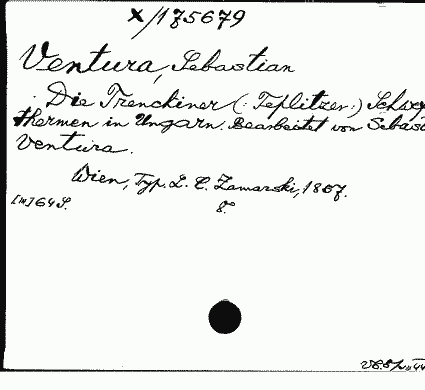 X/175679
Ventura, Sebastian
Die Trencsiner (: Teplitzer :)
thermen in Ungarn. Bearbeitet von Sebas
Ventura.
Wien, Typ. L. C. Zamarski, 1867.
64 S. 8°